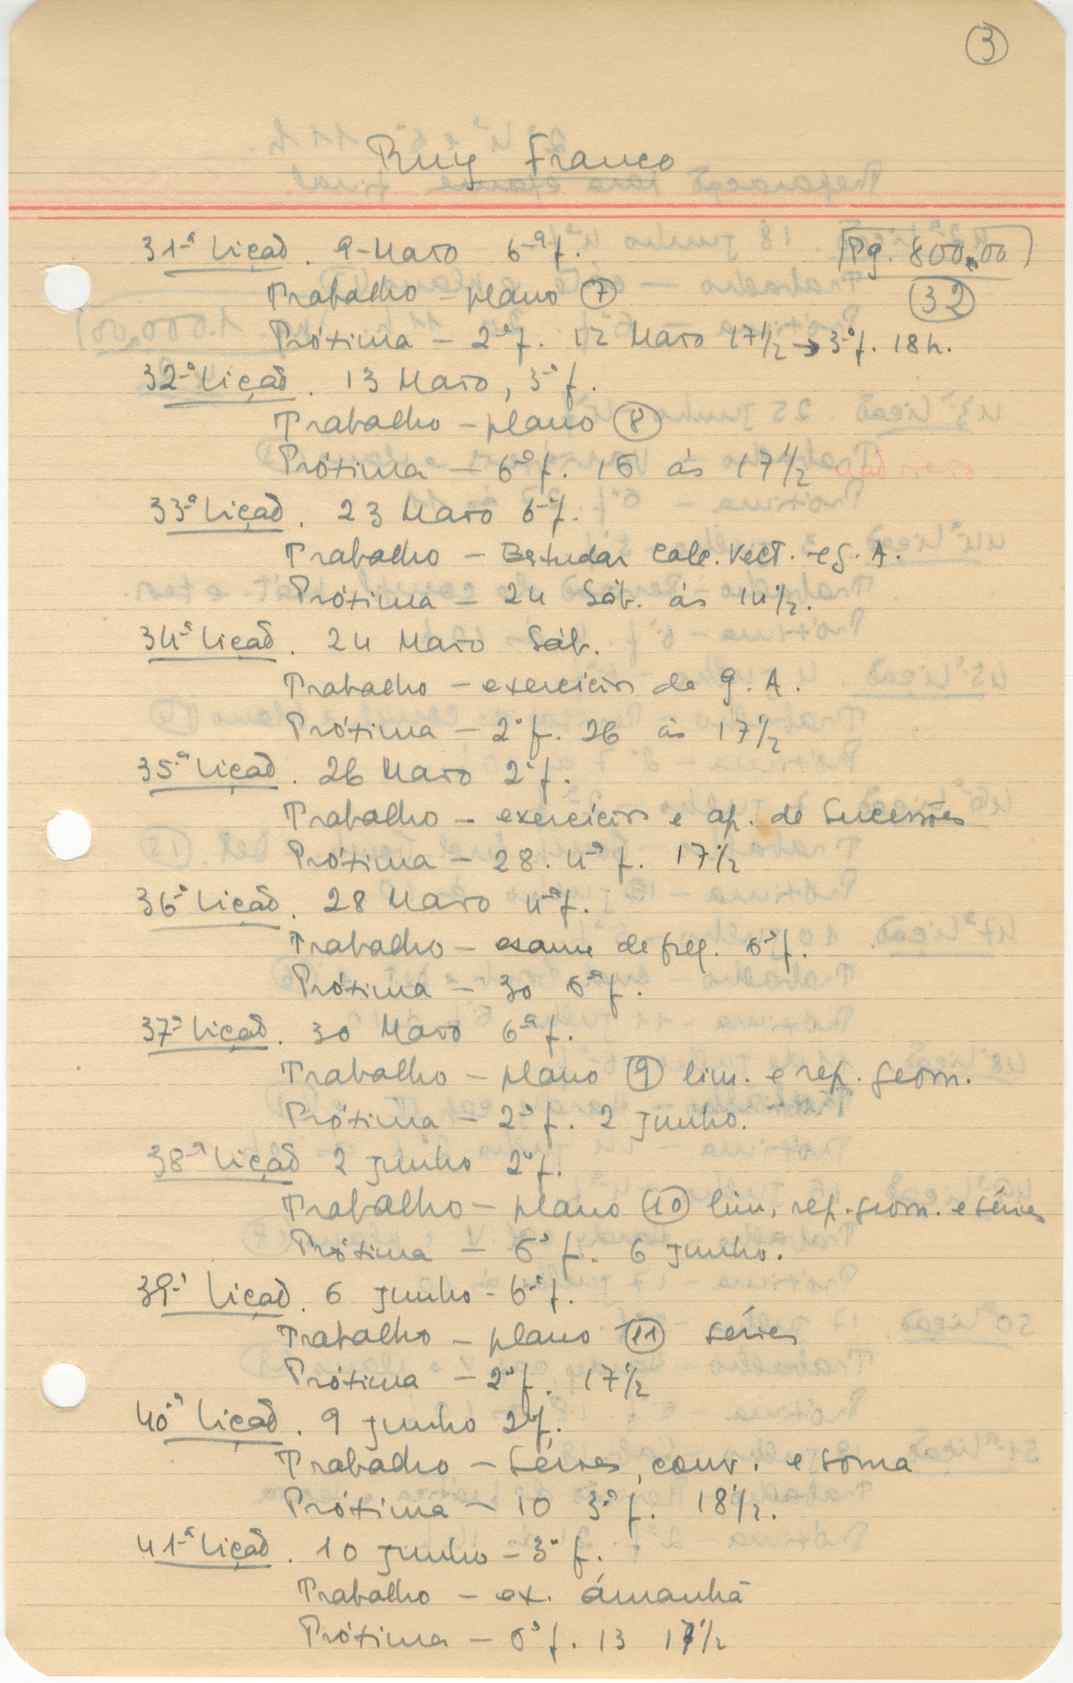 3
Ruy Franco
31ª Lição. 9-Março 6ª f. Pg. 800,00
Trabalho - plano 7 32
Próxima - 2ª f. 12 Março 17 1/2 → 3ª f. 18 h.
32ª Lição. 13 Março, 3ª f.
Trabalho - plano 8
Próxima - 6ª f. 16 às 17 1/2
33ª Lição. 23 Março 6ª f.
Trabalho - Estudar Calc. Vect. eg. A.
Próxima - 24 Sáb. às 14 1/2.
34ª Lição. 24 Março Sáb.
Trabalho - exercícios de g. A.
Próxima - 2ª f. 26 às 17 1/2
35ª Lição. 26 Março 2ª f.
Trabalho - exercícios e ap. de Sucessões
Próxima - 28. 4ª f. 17 1/2
36ª Lição. 28 Março 4ª f.
Trabalho - exame de freq. 6ª f.
Próxima - 30 6ª f.
37ª Lição. 30 Março 6ª f.
Trabalho - plano 9 lim. e rep. geom.
Próxima - 2ª f. 2 Junho.
38ª Lição 2 Junho 2ª f.
Trabalho - plano 10 lim, rep. geom. e séries
Próxima - 6ª f. 6 Junho.
39ª Lição. 6 Junho - 6ª f.
Trabalho - plano 11 séries
Próxima - 2ª f. 17 1/2
40ª Lição. 9 Junho 2ª f.
Trabalho - Séries, conv. e soma
Próxima - 10 3ª f. 18 1/2.
41ª Lição. 10 Junho - 3ª f.
Trabalho - ex. ámanhã
Próxima - 6ª f. 13 17 1/2